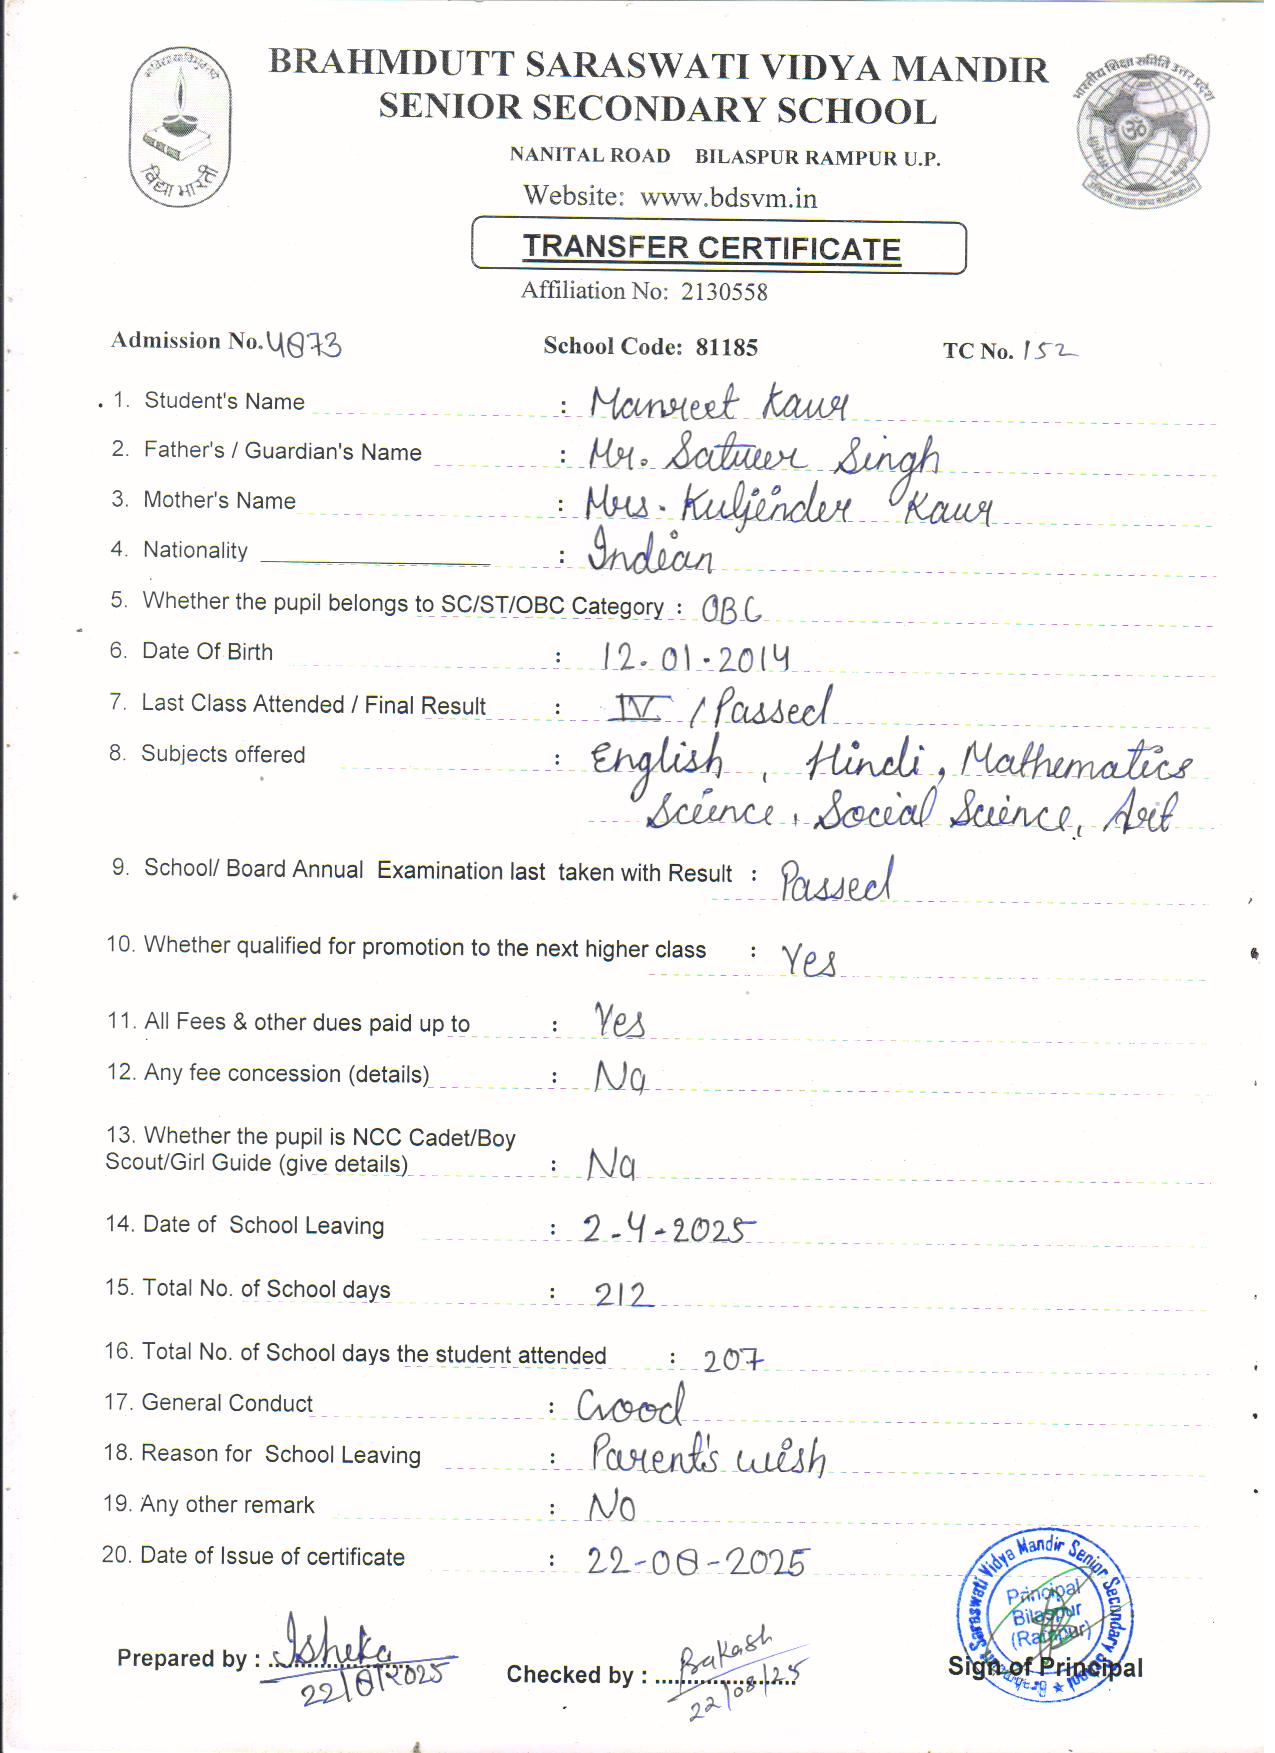 BRAHMDUTT SARASWATI VIDYA MANDIR
SENIOR SECONDARY SCHOOL
NANITAL ROAD BILASPUR RAMPUR U.P.
विद्या भारती
भारतीय शिक्षा समिति उत्तर प्रदेश
Website: www.bdsvm.in
TRANSFER CERTIFICATE
Affiliation No: 2130558
Admission No. 4873 School Code: 81185 TC No. 152
1. Student's Name : Manreet Kaur
2. Father's / Guardian's Name : Mr. Satveer Singh
3. Mother's Name : Mrs. Kuljender Kaur
4. Nationality : Indian
5. Whether the pupil belongs to SC/ST/OBC Category : OBC
6. Date Of Birth : 12.01.2014
7. Last Class Attended / Final Result : IV / Passed
8. Subjects offered : English, Hindi, Mathematics
Science, Social Science, Art
9. School/ Board Annual Examination last taken with Result : Passed
10. Whether qualified for promotion to the next higher class : Yes
11. All Fees & other dues paid up to : Yes
12. Any fee concession (details) : No
13. Whether the pupil is NCC Cadet/Boy
Scout/Girl Guide (give details) : No
14. Date of School Leaving : 2-4-2025
15. Total No. of School days : 212
16. Total No. of School days the student attended : 207
17. General Conduct : Good
18. Reason for School Leaving : Parent's wish
19. Any other remark : No
20. Date of Issue of certificate : 22-08-2025
Saraswati Vidya Mandir Senior Secondary School
Principal
Bilaspur
(Rampur)
Prepared by : Isheka
22/8/2025
Checked by : Prakash
22/08/25
Sign of Principal